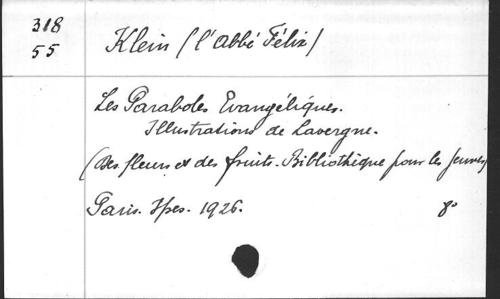 318
55
Klein (l'Abbé Félix)
Les Paraboles Evangéliques.
Illustrations de Lavergne.
(Des fleurs et des fruits. Bibliothèque pour les Jeunes)
Paris. Spes. 1926. 8°